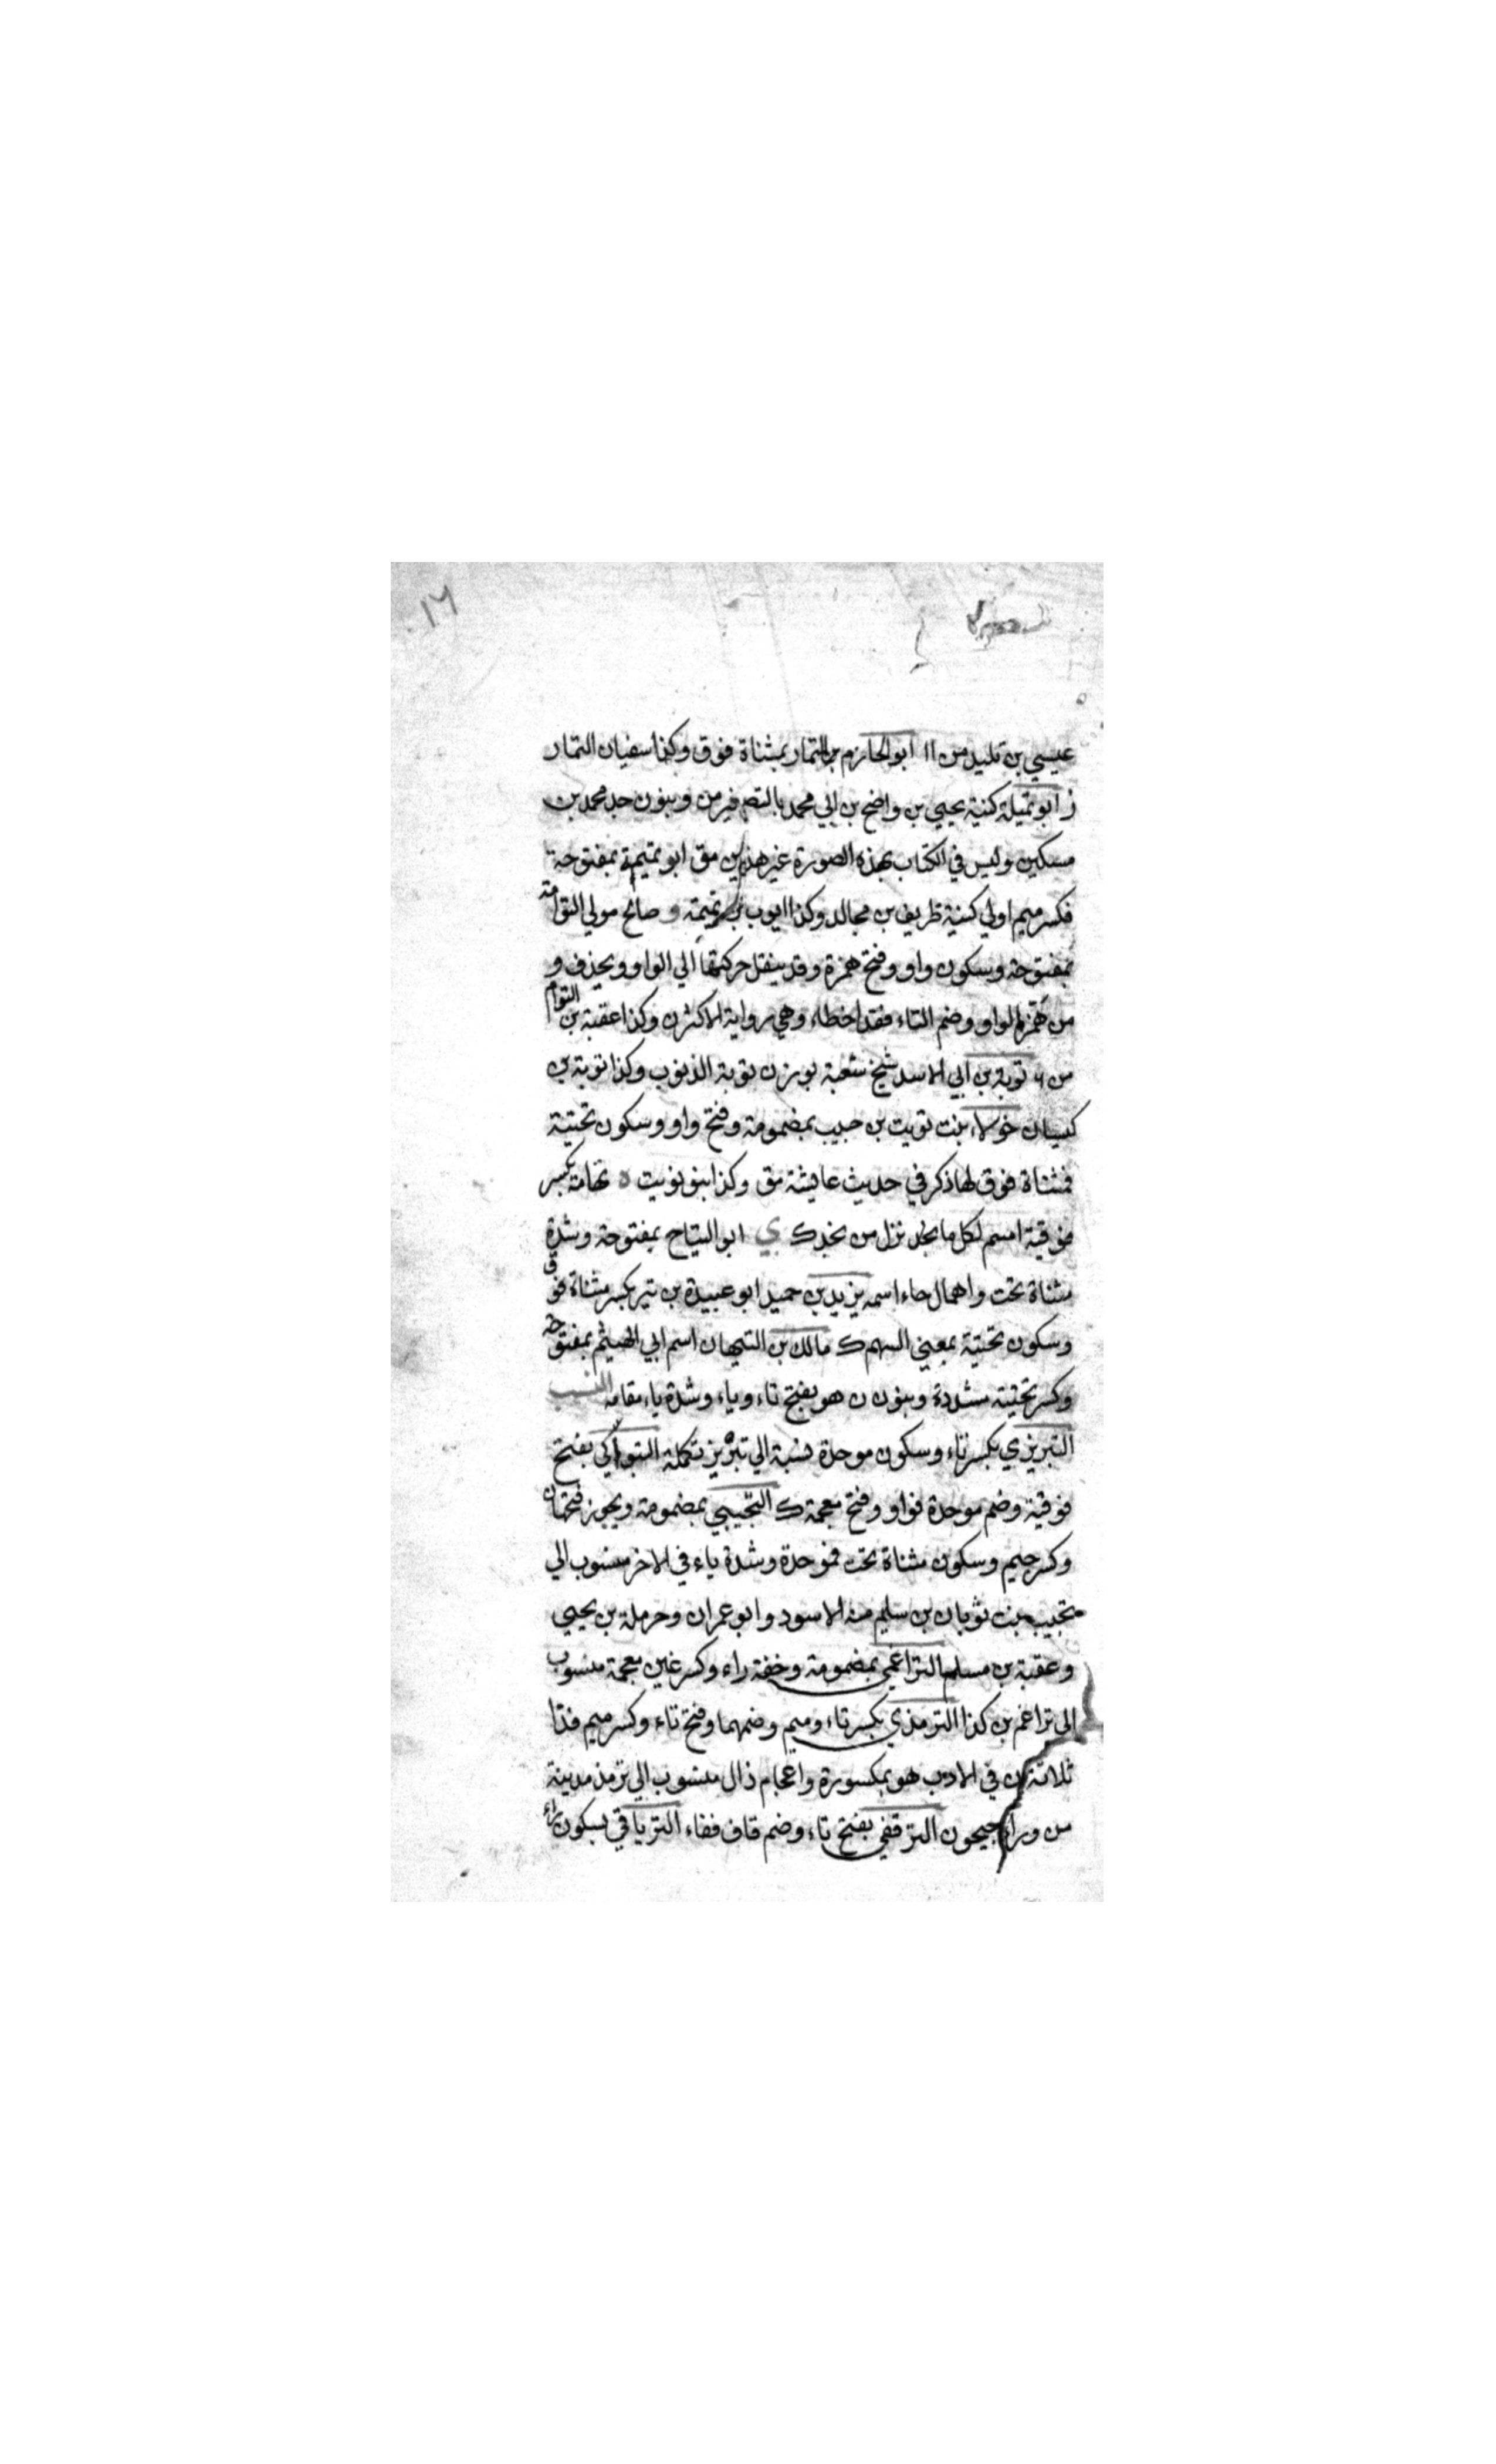 ١٦
عيسي بن تليد من ١١ ابو الحازم بن التمار بمثناة فوق وكذا سفيان التمار
ز ابو تميلة كنية يحيي بن واضح بن ابي محمد بالتصغير من وبنون جد محمد بن
مسكين وليس في الكتاب بهذه الصورة غير هذين مق ابو تميمة بمفتوحة
فكسر ميم اولي كنية ظريف بن مجالد وكذا ايوب بن تميمة و صالح مولي التوامة
بمفتوحة وسكون واو وفتح همزة وقد ينقل حركتها الي الواو ويحذف و
من همزه الواو وضم التاء فقد اخطاء وهي رواية الاكثرن وكذا عقبة بن التوام
من توبة بن ابي الاسد شيخ شعبة بوزن توبة الذنوب وكذا توبة بن
كيسان خولاء بنت تويت بن حبيب بمضمومة وفتح واو وسكون تحتية
فمثناة فوق لها ذكر في حديث عايشة مق وكذا بنو تويت ه تهامة بكسر
فوقية اسم لكل ما نزل من نجد ك ي ابو التياح بمفتوحة وشدة
مثناة تحت واهمال حاء اسمه يزيد بن حميد ابو عبيدة بن تير بكسر مثناة فوق
وسكون تحتية بمعني السهم ك مالك بن التيهان اسم ابي الهيثم بمفتوحة
وكسر تحتية مشددة وبنون ن هو بفتح تاء وياء وشدة ياء مقامه النسب
التبريزي بكسر تاء وسكون موحدة نسبة الي تبريز تكملة التبوذكي بفتح
فوقية وضم موحدة فواو وفتح معجمة ك التجيبي بمضمومة ويجوز فتحها ن
وكسر جيم وسكون مثناة تحت فموحدة وشدة ياء في الاخر منسوب الي
تجيب بنت ثوبان بن سليم منه الاسود وابو عمران وحرملة بن يحيي
وعقبة بن مسلم التراغمي بمضمومة وخفة راء وكسر غين معجمة منسوب
الي تراغم بن كذا الترمذي بكسر تاء وميم وضمهما وفتح تاء وكسر ميم فذا
ثلاثة ن في الادب هو بمكسورة واعجام ذال منسوب الي ترمذ مدينة
من وراء جيحون الترقفي بفتح تاء وضم قاف ففاء الترياقي بسكون راء